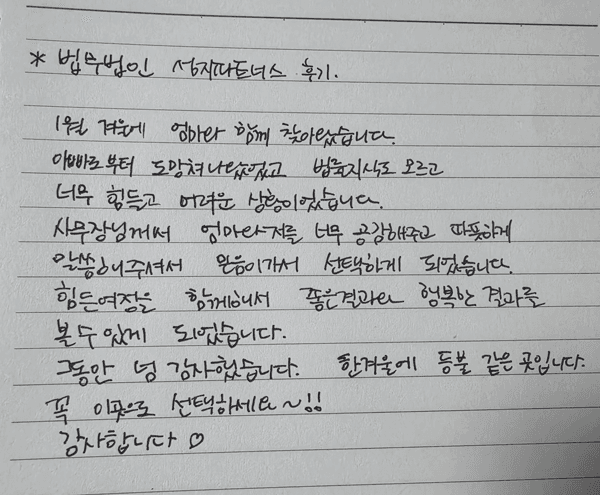 * 법무법인 성지파트너스 후기.
1월 겨울에 엄마와 함께 찾아왔습니다.
아빠로부터 도망쳐나왔었고 법률지식도 모르고
너무 힘들고 어려운 상황이었습니다.
사무장님께서 엄마와 저를 너무 공감해주고 따뜻하게
말씀해주셔서 믿음이가서 선택하게 되었습니다.
힘든여정을 함께해서 좋은결과와 행복한 결과를
볼 수 있게 되었습니다.
그동안 넘 감사했습니다. 한겨울에 등불 같은 곳입니다.
꼭 이곳으로 선택하세요~!!
감사합니다 ♡